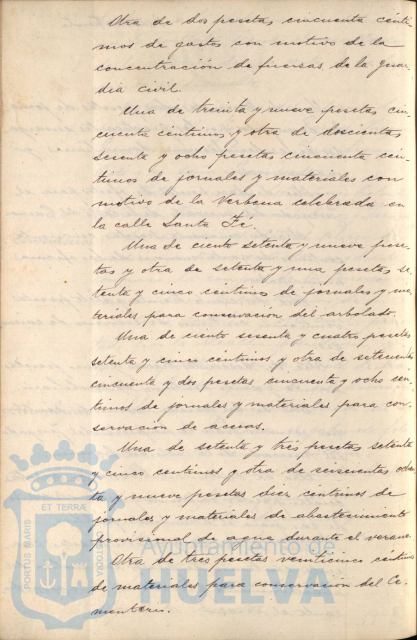 Otra de dos pesetas cincuenta cénti-
mos de gastos con motivo de la
concentración de fuersas de la guar-
dia civil.
Una de treinta y nueve pesetas cin-
cuenta centimos y otra de doscientas
sesenta y ocho pesetas cincuenta cén-
timos de jornales y materiales con
motivo de la Verbena celebrada en
la calle Santa Fé.
Una de ciento setenta y nueve pese-
tas y otra de setenta y una pesetas se-
tenta y cinco centimos de jornales y ma-
teriales para conservacion del arbolado.
Una de ciento sesenta y cuatro pesetas
setenta y cinco céntimos y otra de setecientas
cincuenta y dos pesetas cincuenta y ocho cen-
timos de jornales y materiales para con-
servacion de aceras.
Una de setenta y tres pesetas setenta
y cinco centimos y otra de seiscientas ochen-
ta y nueve pesetas diez centimos de
jornales y materiales de abastecimiento
provisional de agua durante el verano.
Otra de tres pesetas veinticinco centimos
de materiales para conservacion del Ce-
menterio.
PORTUS MARIS ET TERRÆ CUSTODIA
Ayuntamiento de
HUELVA